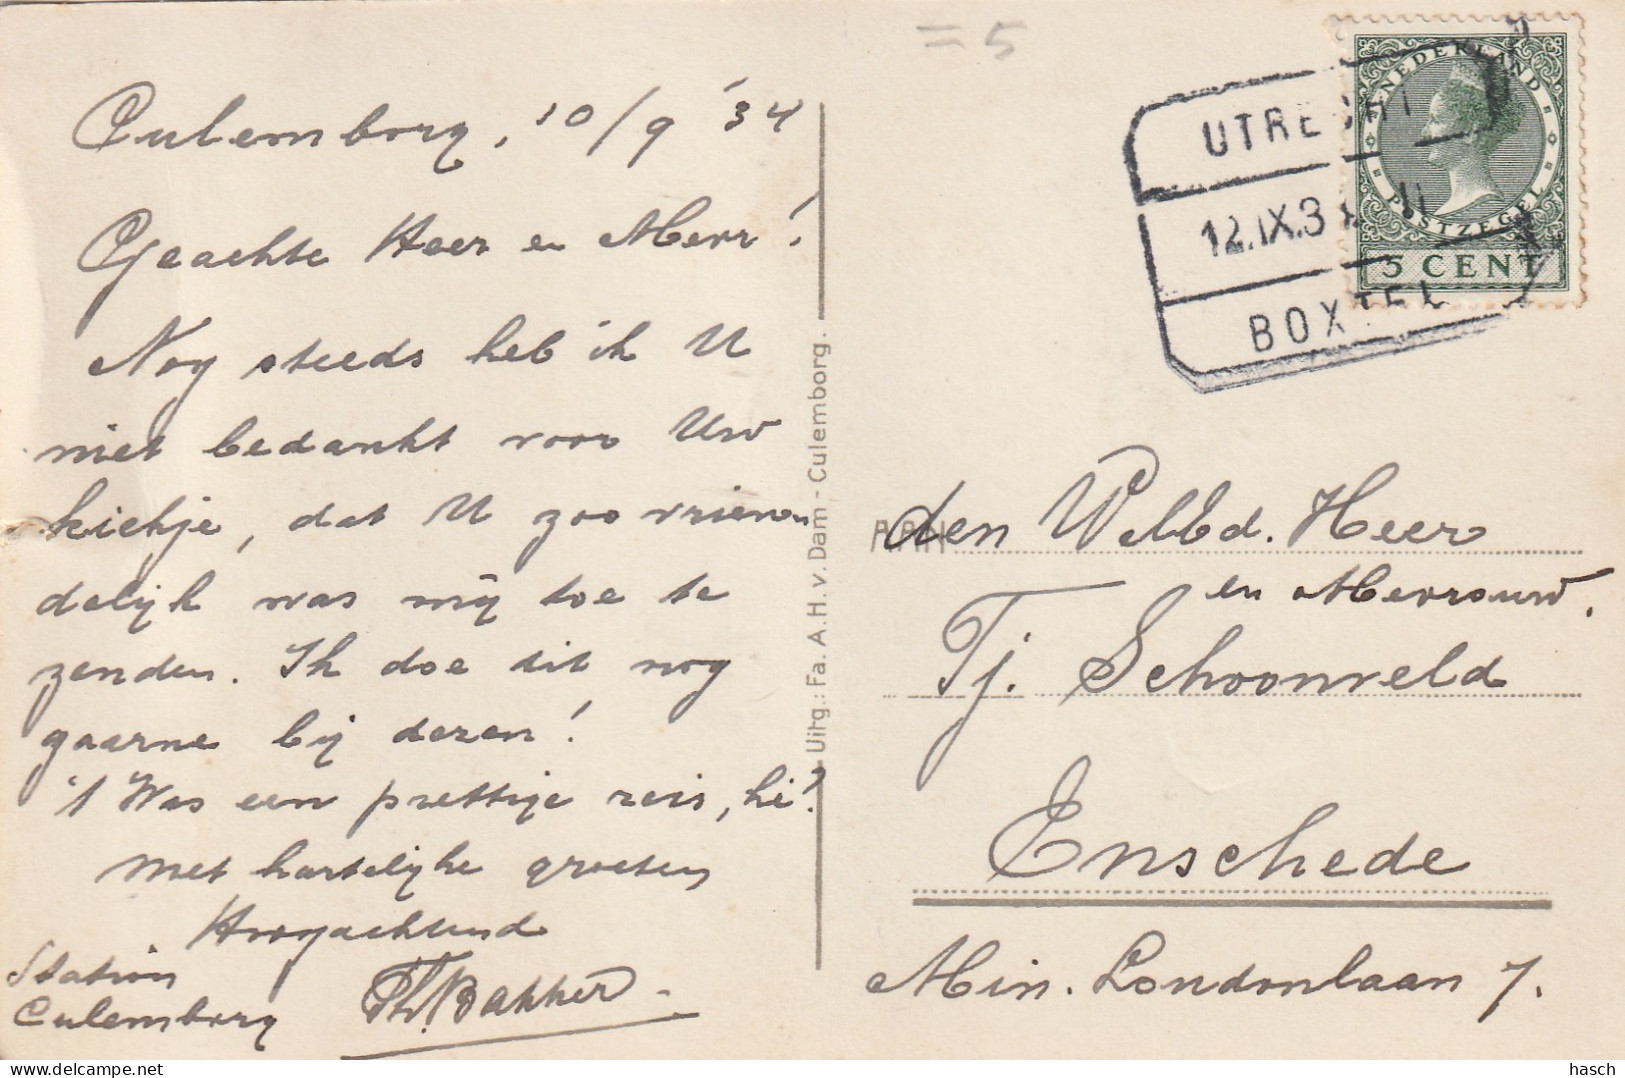 = 5
Culemborg, 10/9 '34
Geachte Heer en Mevr!
Nog steeds heb ik U
niet bedankt voor Uw
kiekje, dat U zoo vrien
delijk was mij toe te
zenden. Ik doe dit nog
gaarne bij dezen!
't Was een prettige reis, hè?
Met hartelijke groeten
Hoogachtend
Station
Culemborg
Th. Bakker.
Uitg.: Fa. A.H. v. Dam - Culemborg.
NEDERLAND
POSTZEGEL
5 CENT
UTRECHT
12.IX.34
BOXTEL
AAN
den WelEd. Heer
en Mevrouw.
Tj. Schoonveld
Enschede
Min. Loudonlaan 7.
hasch